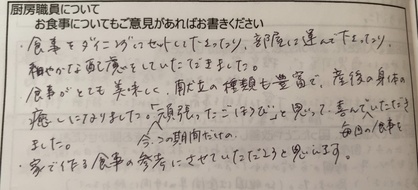 厨房職員について
お食事についてもご意見があればお書きください
・食事をダイニングにセットして下さったり、部屋に運んで下さったり、
細やかな配慮をしていただきました。
食事がとても美味しく、献立の種類も豊富で、産後の身体の
癒しになりました。「頑張ったごほうび」と思って、喜んでいただき
ました。
今、この期間だけの、
毎回の食事を
・家で作る食事の参考にさせていただこうと思います。